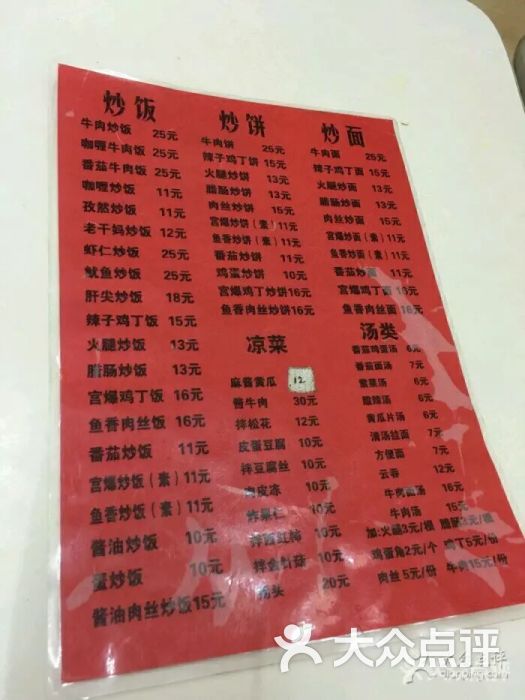 炒饭
牛肉炒饭 25元
咖喱牛肉饭 25元
番茄牛肉饭 25元
咖喱炒饭 11元
孜然炒饭 11元
老干妈炒饭 12元
虾仁炒饭 25元
鱿鱼炒饭 25元
肝尖炒饭 18元
辣子鸡丁饭 15元
火腿炒饭 13元
腊肠炒饭 13元
宫爆鸡丁饭 16元
鱼香肉丝饭 16元
番茄炒饭 11元
宫爆炒饭(素)11元
鱼香炒饭(素)11元
酱油炒饭 10元
蛋炒饭 10元
酱油肉丝炒饭15元
炒饼
牛肉饼 25元
辣子鸡丁饼 15元
火腿炒饼 13元
腊肠炒饼 13元
肉丝炒饼 15元
宫爆炒饼(素)11元
鱼香炒饼(素)11元
番茄炒饼 11元
鸡蛋炒饼 10元
宫爆鸡丁炒饼16元
鱼香肉丝炒饼16元
炒面
牛肉面 25元
辣子鸡丁面 15元
火腿炒面 13元
腊肠炒面 13元
肉丝炒面 15元
宫爆炒面(素)11元
鱼香炒面(素)11元
番茄炒面 11元
宫爆鸡丁面 16元
鱼香肉丝面 16元
凉菜
麻酱黄瓜 12
酱牛肉 30元
拌松花 12元
皮蛋豆腐 10元
拌豆腐丝 10元
肉皮冻 10元
炸果仁 10元
10元
拌金针菇 10元
20元
汤类
番茄鸡蛋汤 6元
番茄面汤 7元
紫菜汤 6元
酸辣汤 6元
黄瓜片汤 6元
清汤挂面 7元
方便面 7元
云吞 12元
牛肉面汤 16元
牛肉汤 15元
加:火腿3元/根 腊肠3元/根
鸡蛋角2元/个 鸡丁5元/份
肉丝5元/份 牛肉15元/份
大众点评
dianping.com